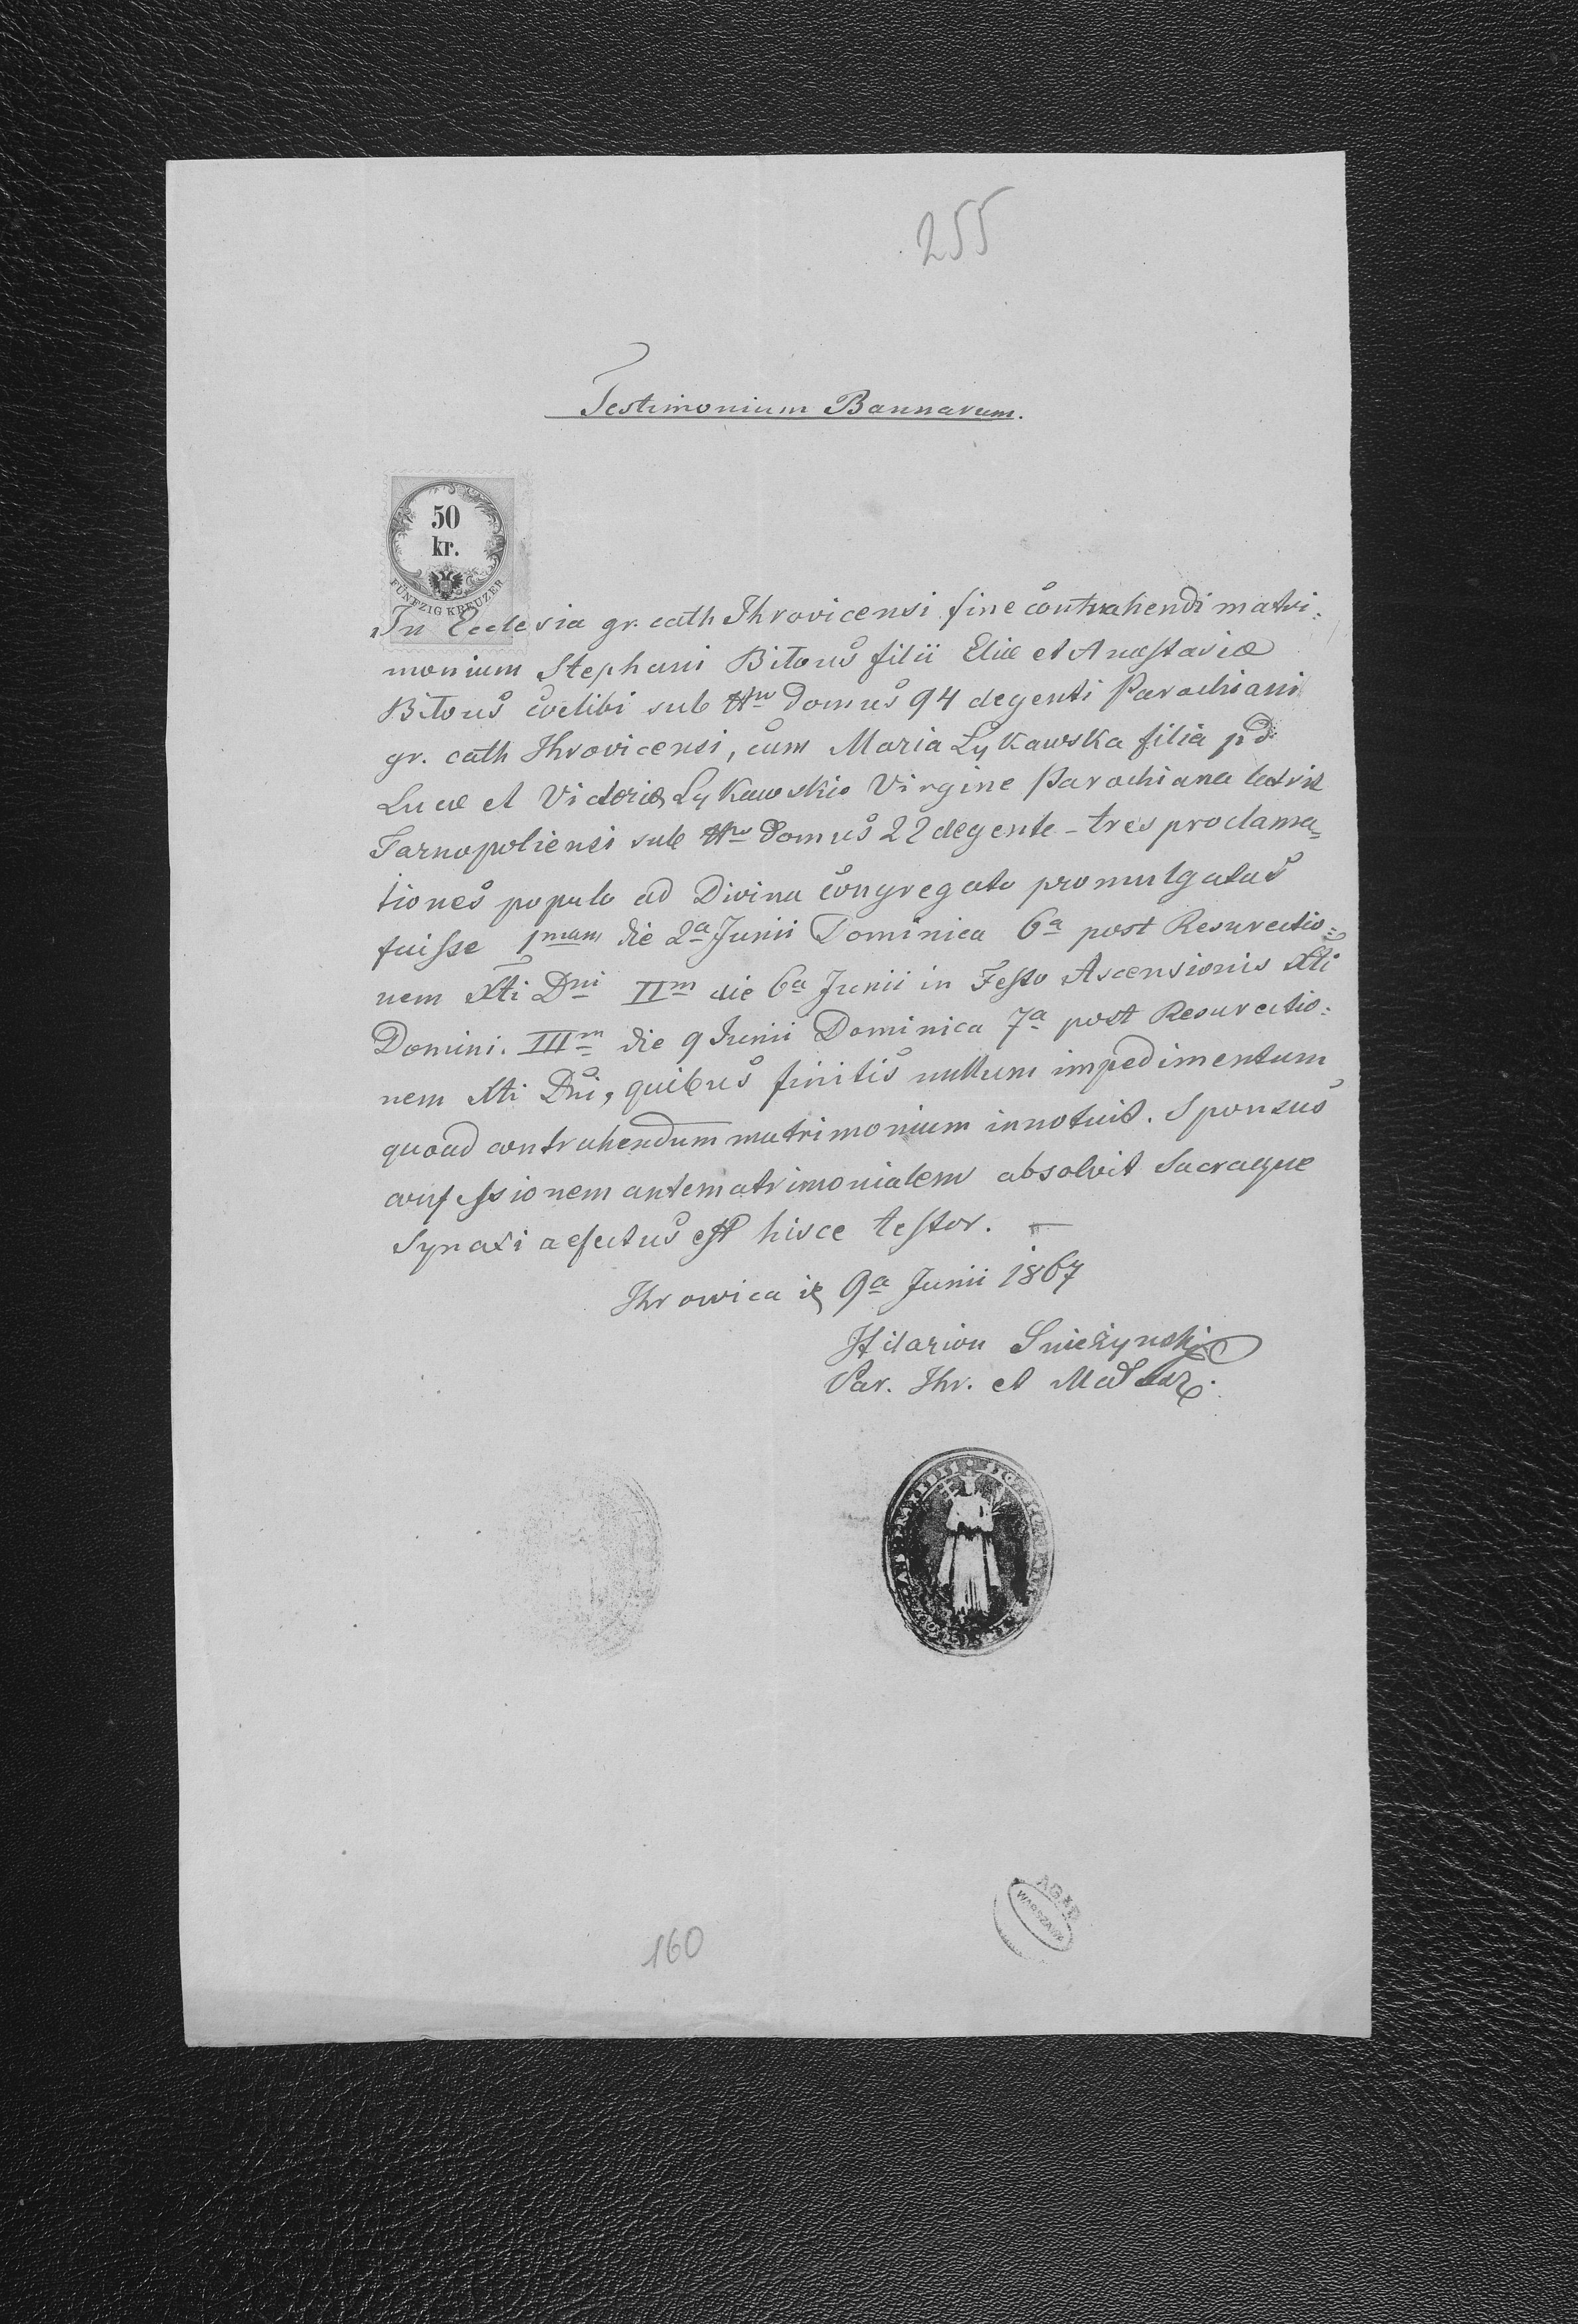 255
Testimonium Bannarum.
50
kr.
FÜNFZIG KREUZER
In Ecclesia gr. cath Ihrovicensi fine contrahendi matri-
monium Stephani Bitous filii Eliæ et Anastasiæ
Bitous coelibi sub Nro domus 94 degenti Parochiani
gr. cath Ihrovicensi, cum Maria Lykawska filia pd
Lucæ et Victoriæ Lykawskie Virgine Parochiana
Tarnopoliensi sub Nro domus 22 degente - tres proclama-
tiones populo ad Divina congregato promulgatas
fuisse 1mam die 2a Junii Dominica 6a post Resurectio-
nem Xti Dni IIm die 6a Junii in Festo Ascensionis Xti
Domini. IIIm die 9 Junii Dominica 7a post Resurectio-
nem Xti Dni, quibus finitis nullum impedimentum
quoad contrahendum matrimonium innotuit. Sponsus
confessionem antematrimonialem absolvit Sacraque
Synaxi refectus est hisce testor. —
Ihrowica 9a Junii 1867
Hilarion Snieżynski
Par. Ihr. et
AGAD
WARSZAWA
160